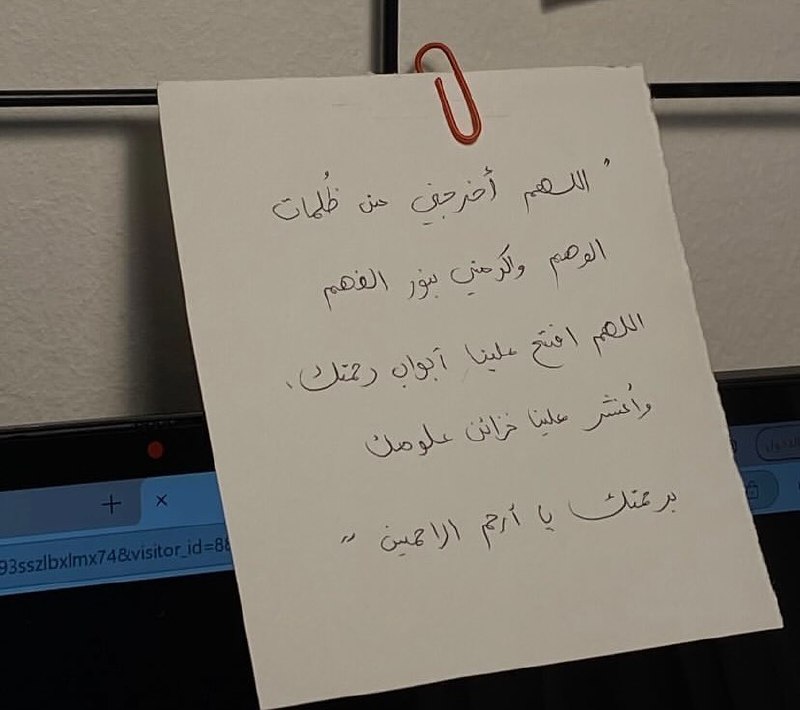 " اللهم أخرجني من ظُلمات
الوهم واكرمني بنور الفهم
اللهم افتح علينا أبواب رحمتك،
وأنشر علينا خزائن علومك
برحمتك يا أرحم الراحمين "
93sszlbxlmx74&visitor_id=88